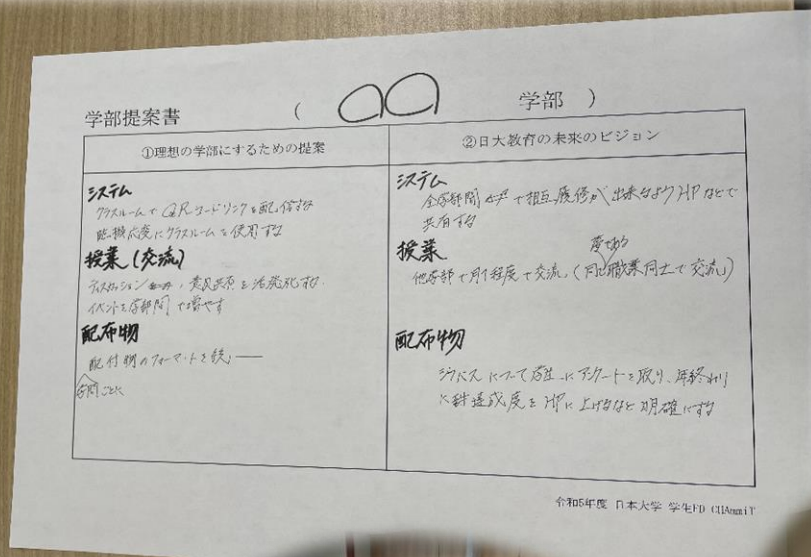 学部提案書 ( 学部 )
①理想の学部にするための提案
システム
クラスルームでQRコードリンクを配信する
にクラスルームを使用する
授業(交流)
ディスカッション 意見共有を活発化する.
イベントを学部間で増やす
配布物
配付物のフォーマットを統一
ごとに
②日大教育の未来のビジョン
システム
全学部間 で相互履修が出来るようHPなどで
共有する
授業
他学部で月1程度で交流.(同じ職業同士で交流)
配布物
シラバスについて学生にアンケートを取り、年終わり
に 達成度をHPに上げるなど明確にする
令和5年度 日本大学 学生FD CHAmmiT